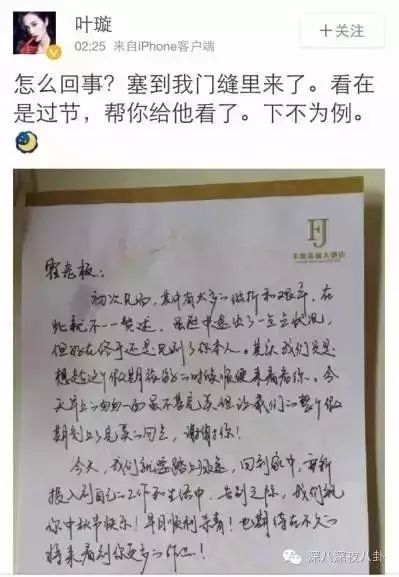 叶璇
02:25 来自iPhone客户端
+关注
怎么回事？塞到我门缝里来了。看在
是过节，帮你给他看了。下不为例。
FJ
大酒店
霍老板：
初次见面，其中有太多的波折和艰辛，在
此就不一一赘述，虽然中途出了一点点状况，
但好在终于还是见到了你本人。其实我们只是
想趁这个假期旅游的时候顺便来看看你。今
天早上的匆匆一面虽不甚完美但让我们的整个假
期划上了完美的句点，谢谢你！
今天，我们就要踏上归途，回到家中，重新
投入到自己的工作和生活中，告别之际，我们祝
你中秋节快乐！早日顺利杀青！也期待在不久的
将来看到你更多的作品！
深八深夜八卦